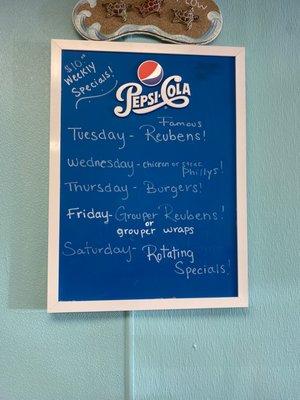 $10
Weekly
Specials!
PEPSI-COLA
Famous
Tuesday - Reubens!
Wednesday - chicken or steak
Phillys!
Thursday - Burgers!
Friday - Grouper Reubens!
or
grouper wraps
Saturday - Rotating
Specials!